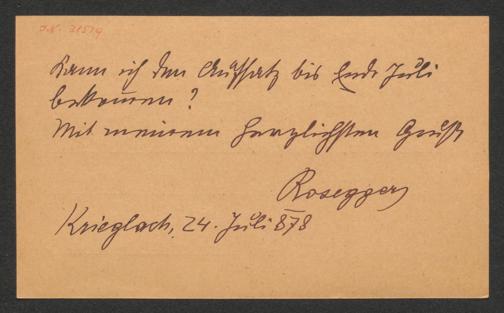 J.N. 21519
Kann ich den Aufsatz bis Ende Juli
bekommen?
Mit meinem herzlichsten Gruße
Rosegger
Krieglach, 24. Juli 878